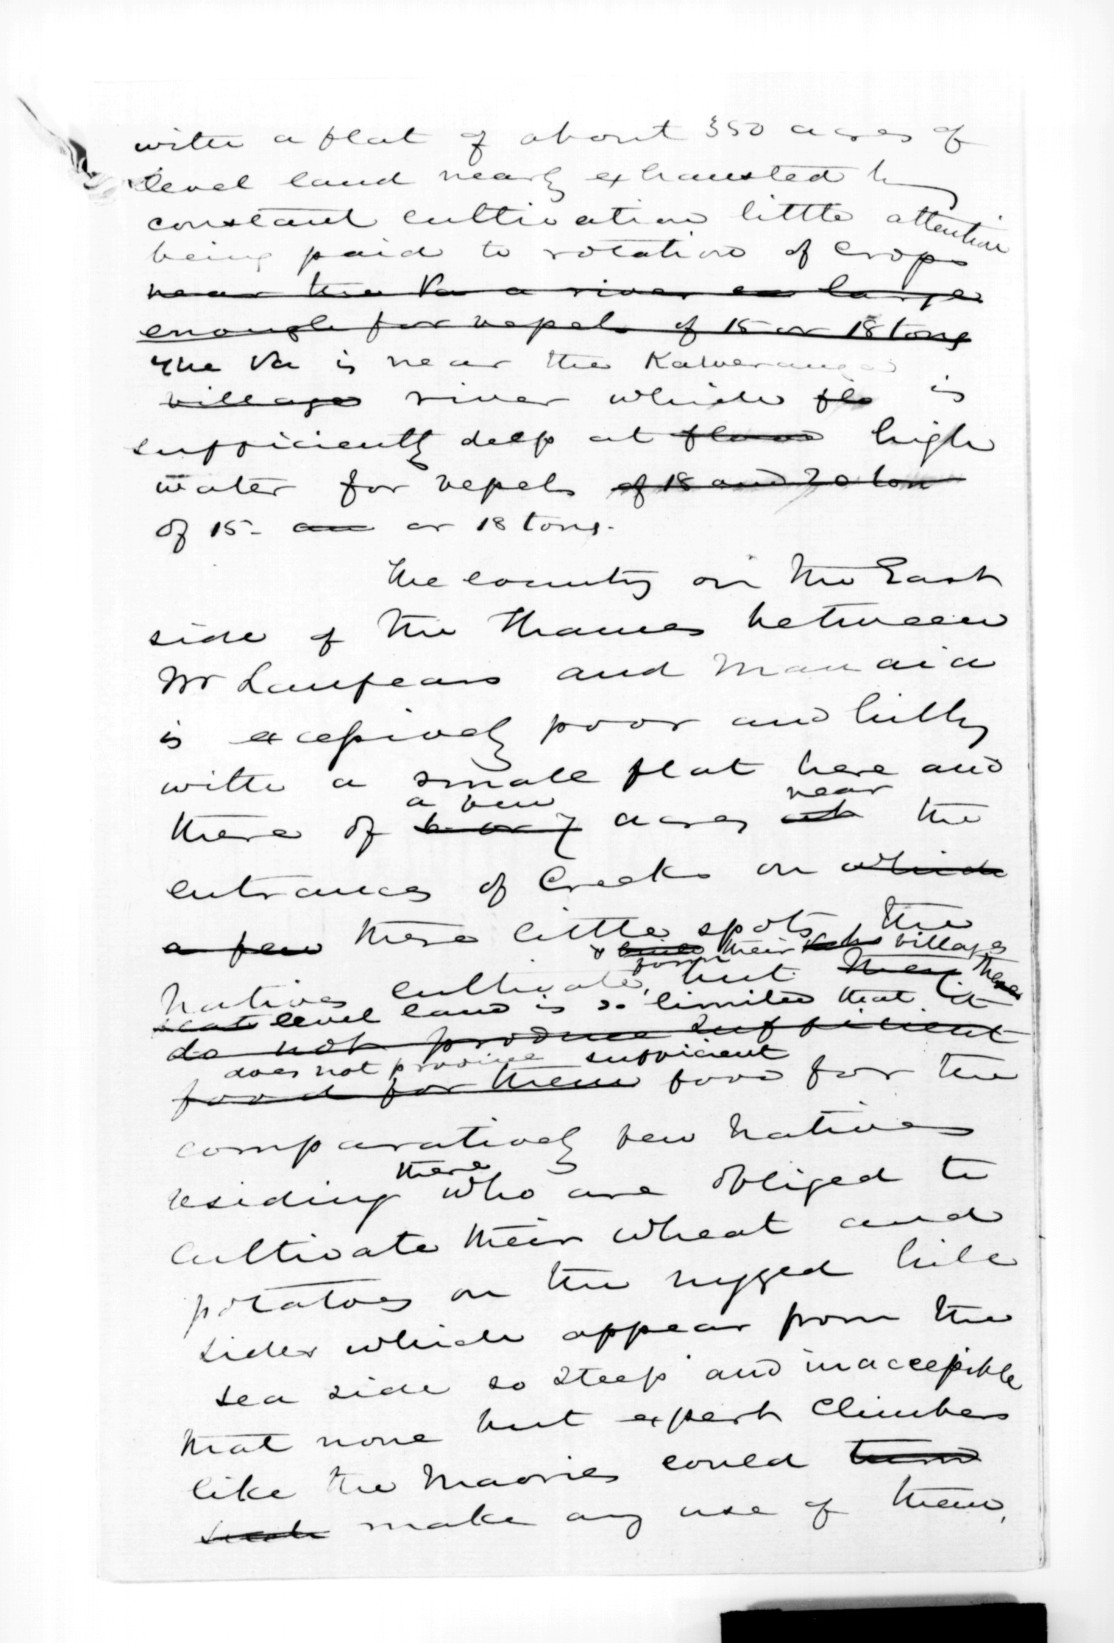 with a flat of about 350 acres of
level land nearly exhausted by
constant cultivation little attention
being paid to rotation of crops
near the Pa a river large
enough for vessels of 15 or 18 tons
The Pa is near the Kaweranga
village river which flo is
sufficiently deep at flood high
water for vessels of 18 and 20 ton
of 15 or 18 tons.
The country on the East
side of the Thames between
Mr Lanfears and Manaia
is excessively poor and hilly
with a small flat here and
a few near
there of 6 or 7 acres at the
entrances of Creeks on which
a few these little spots the
& their villages
form
Natives cultivate, but they these
level land is so limited that it
do not produce sufficient
does not provide sufficient
food for them food for the
comparatively few Natives
there
residing who are obliged to
cultivate their wheat and
potatoes on the rugged hill
sides which appear from the
sea side so steep and inaccessible
that none but expert climbers
like the Maories could
make any use of them.